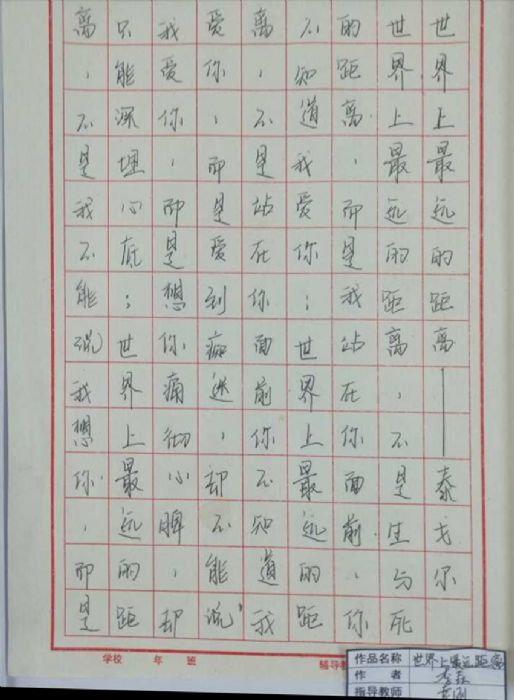 世界上最远的距离——泰戈尔
世界上最远的距离,不是生与死
的距离,而是我站在你面前,你
不知道我爱你;世界上最远的距
离,不是站在你面前你不知道我
爱你,而是爱到痴迷,却不能说
我爱你,而是想你痛彻心脾,却
只能深埋心底;世界上最远的距
离,不是我不能说我想你,而是
学校 年 班 辅导教
作品名称 世界上最远距离
作者
指导教师